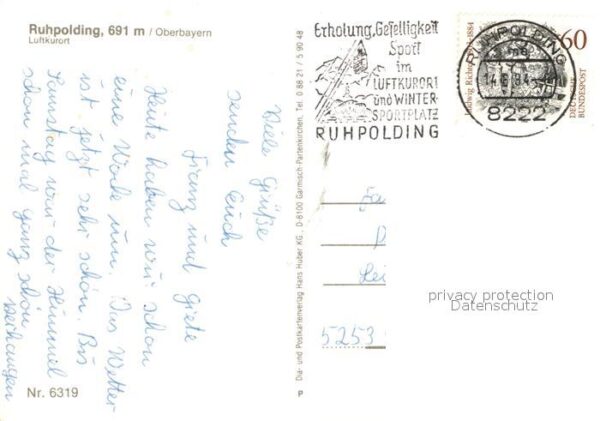 Ruhpolding, 691 m / Oberbayern
Luftkurort
Viele Grüße
senden Euch
Franz und Grete
Heute haben wir schon
eine Woche um. Das Wetter
ist jetzt sehr schön. Bis
Samstag war der Himmel
schon mal ganz schön
verhangen
Nr. 6319
Dia- und Postkartenverlag Hans Huber KG. · D-8100 Garmisch-Partenkirchen, Tel. 0 88 21 / 5 90 48
P
Erholung, Geselligkeit
Sport
im
LUFTKURORT
und WINTER-
SPORTPLATZ
RUHPOLDING
RUHPOLDING
8222
Ludwig Richter 1884
60
DEUTSCHE
BUNDESPOST
5253
privacy protection
Datenschutz